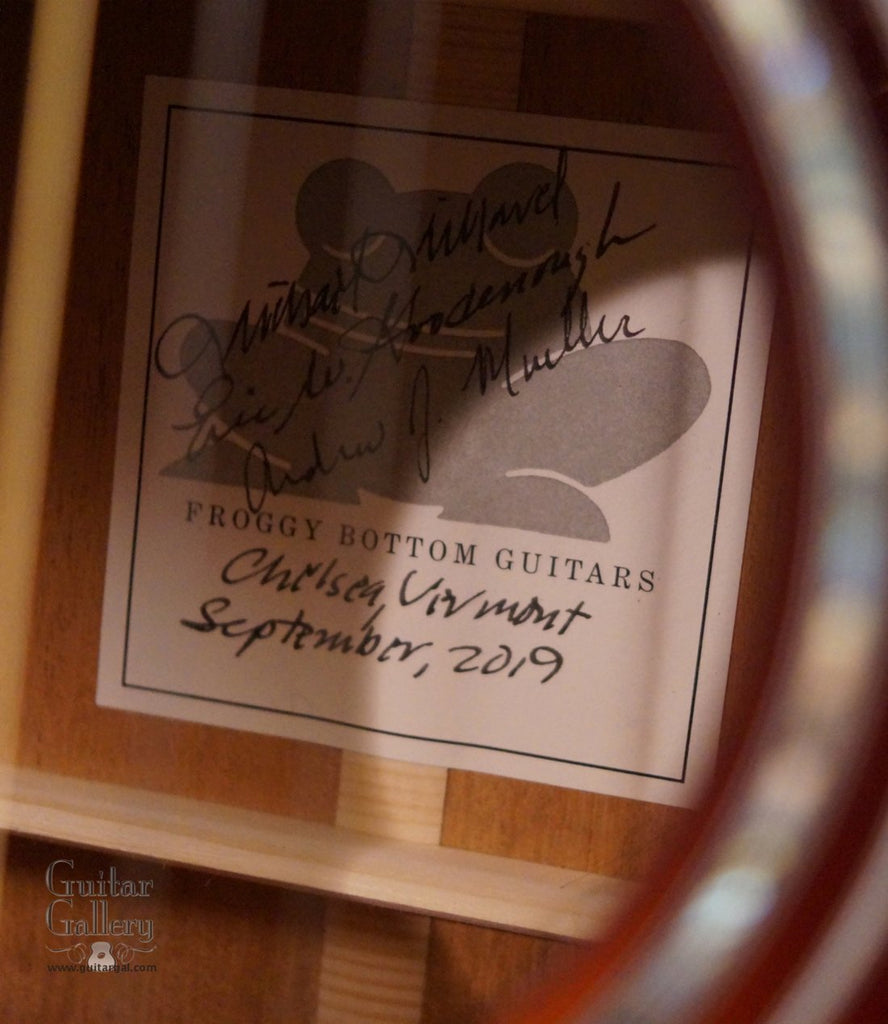 Michael Millard
Eric W. Goodenough
Andrew J. Mueller
FROGGY BOTTOM GUITARS
Chelsea, Vermont
September, 2019
Guitar
Gallery
www.guitargal.com